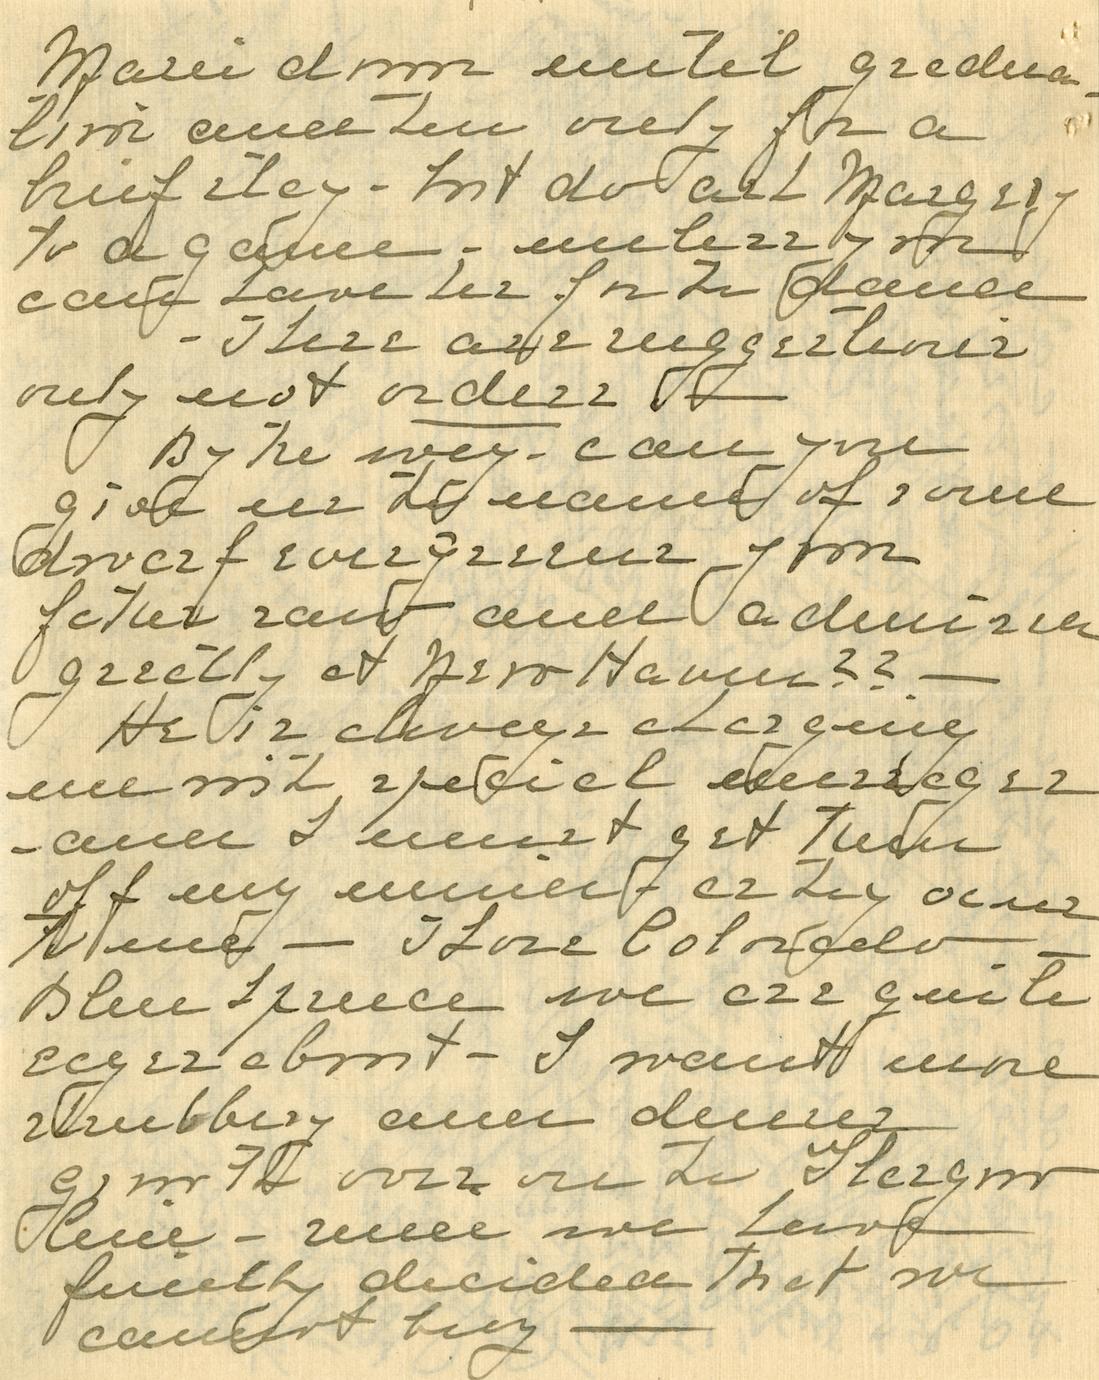 Marie down until gradua-
tion and then only for a
brief stay - but do ask Margery
to a game - unless you
can have her for the dance
- These are suggestions
only not orders
By the way - can you
give me the name of some
dwarf evergreens your
father saw and admired
greatly at New Haven?? -
He is always charging
me with special messages
- and I must get them
off my mind as they over
- I love Colorado -
Blue Spruce we are quite
eager about - I want more
shrubbery and denser
growth over on the Glasgow
line - since we have
finally decided that we
cannot buy -